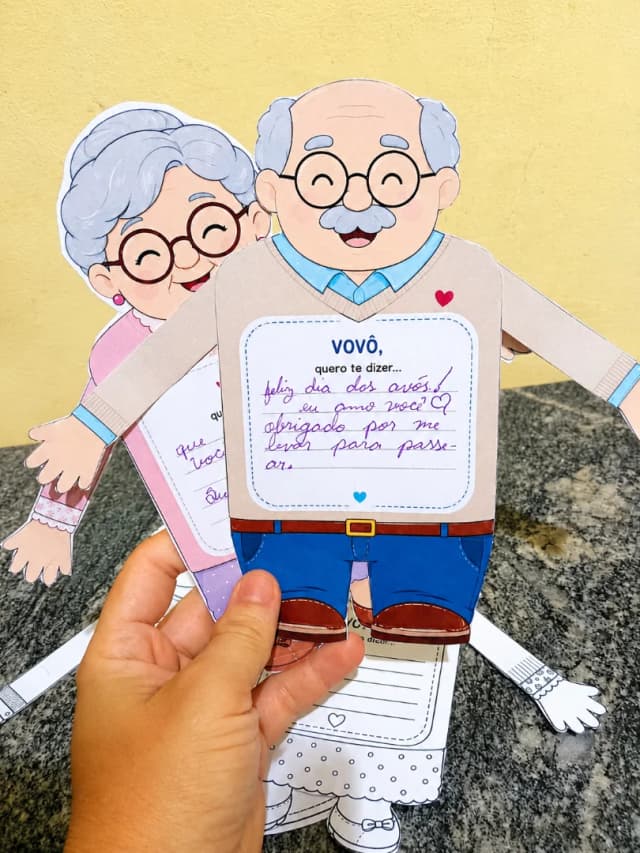 VOVÔ,
quero te dizer...
feliz dia dos avós!
eu amo você
obrigado por me
levar para passe-
ar.
qu
que
você
dizer...